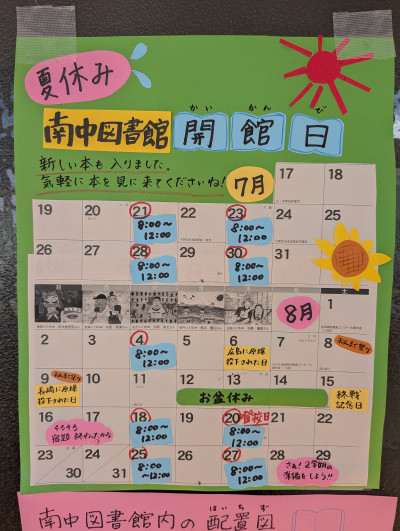 夏休み
南中図書館開館日
かいかんび
新しい本も入りました。
気軽に本を見に来てくださいね!
7月
17 18
19 20 21 22 23 24 25
8:00~12:00
8:00~12:00
26 27 28 29 30 31
8:00~12:00
8:00~12:00
8月
1
2 3 4 5 6 7 8
8:00~12:00
広島に原爆投下された日
9 10 11 12 13 14 15
長崎に原爆投下された日
お盆休み
終戦記念日
16 17 18 19 20 21 22
そろそろ宿題終わったかな
8:00~12:00
登校日
8:00~12:00
23 24 25 26 27 28 29
30 31
8:00~12:00
8:00~12:00
さぁ!2学期の準備をしよう!!
南中図書館内の配置図
はいちず